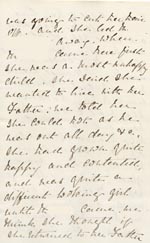 was going to cut her hair
off. and she led the
away. When
Mr came here first
she was a most unhappy
child. She said she
wanted to live with her
Father; we told her
she could not as he
was out all day &c.
She had grown quite
happy and contented
and was quite a
different looking girl
until Mr came, we
think she thought if
she returned to her Father